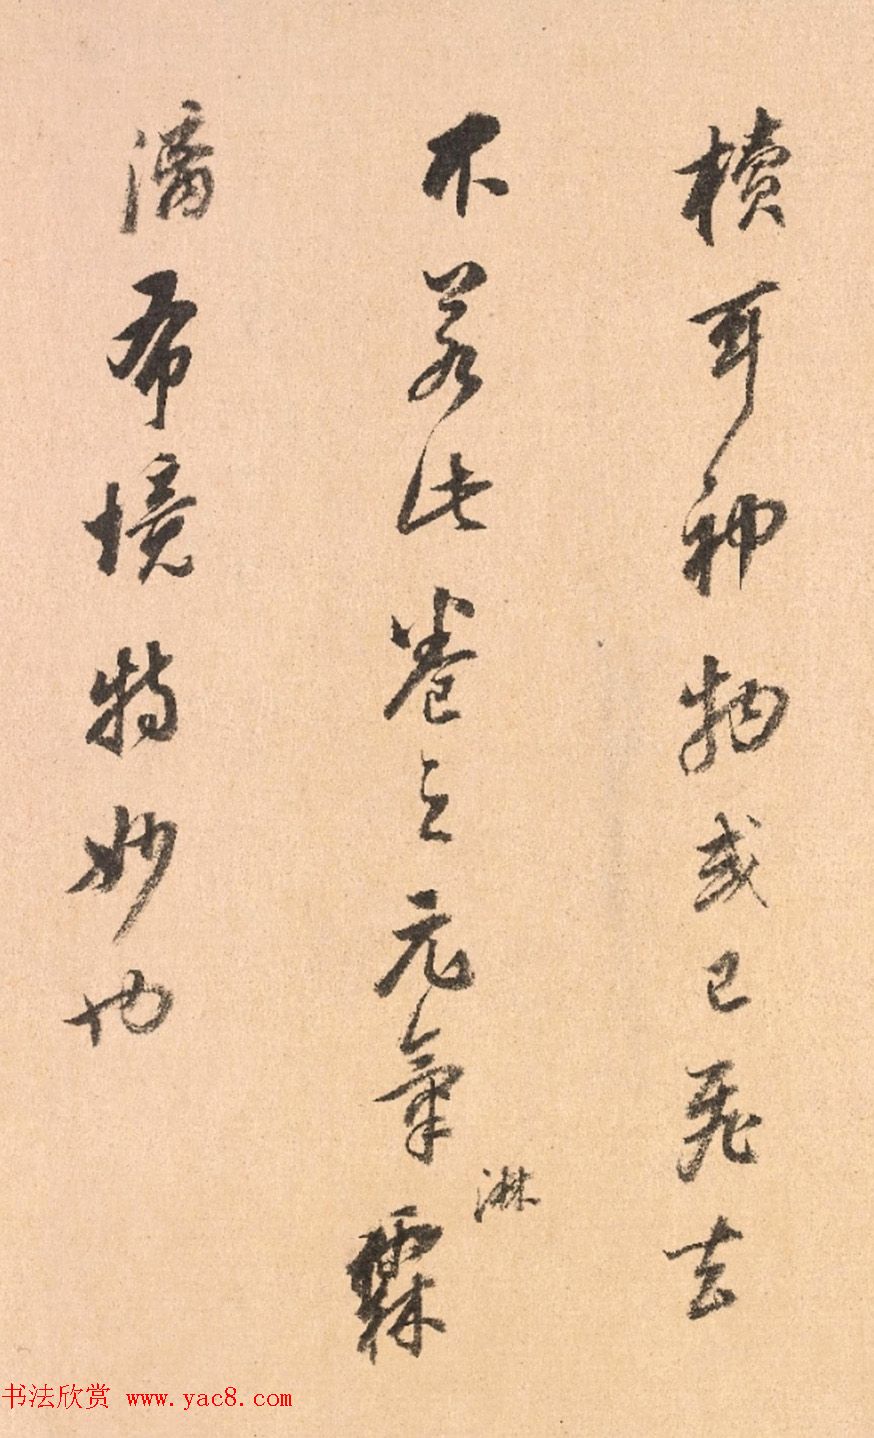 櫝耳神物或已飛去
不若此卷之元氣霖淋
漓布境特妙也
书法欣赏 www.yac8.com